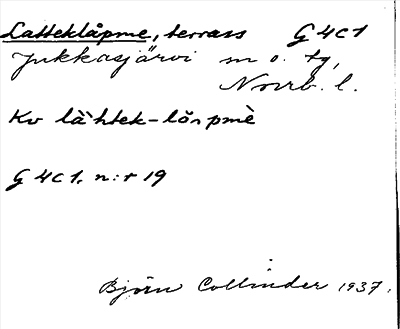 Latteklåpme, terrass G 4c1
Jukkasjärvi m o. tg,
Norrb. l.
Kv làhtek-lŏspmè
G 4c1, n:r 19
Björn Collinder 1937.